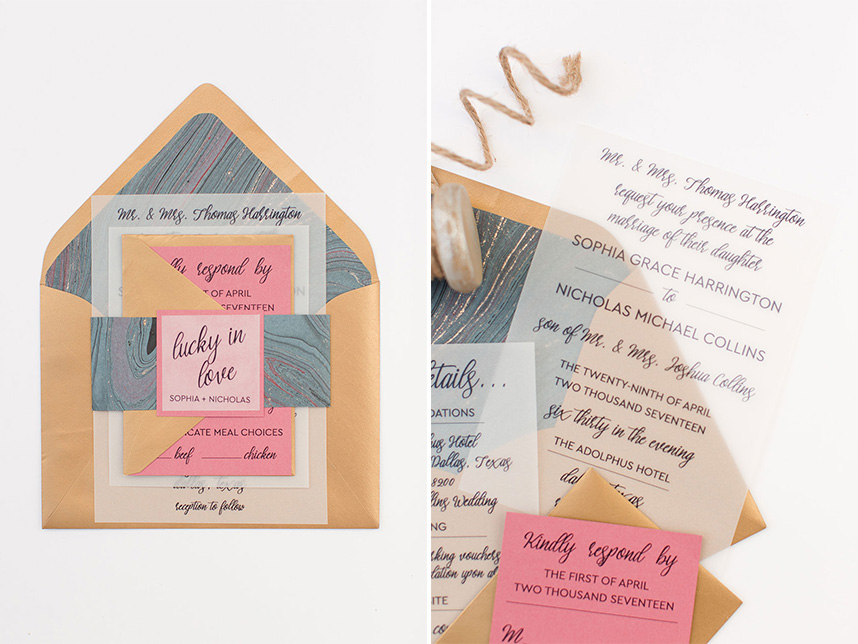 Mr. & Mrs. Thomas Harrington
lly respond by
FIRST OF APRIL
SEVENTEEN
lucky in
love
SOPHIA + NICHOLAS
ICATE MEAL CHOICES
beef chicken
reception to follow
Mr. & Mrs. Thomas Harrington
request your presence at the
marriage of their daughter
SOPHIA GRACE HARRINGTON
to
NICHOLAS MICHAEL COLLINS
son of Mr. & Mrs. Joshua Collins
THE TWENTY-NINTH OF APRIL
TWO THOUSAND SEVENTEEN
six thirty in the evening
THE ADOLPHUS HOTEL
etails...
DATIONS
lphus Hotel
Dallas, Texas
8900
llins Wedding
NG
rking vouchers
dation upon a
ITE
Kindly respond by
THE FIRST OF APRIL
TWO THOUSAND SEVENTEEN
M